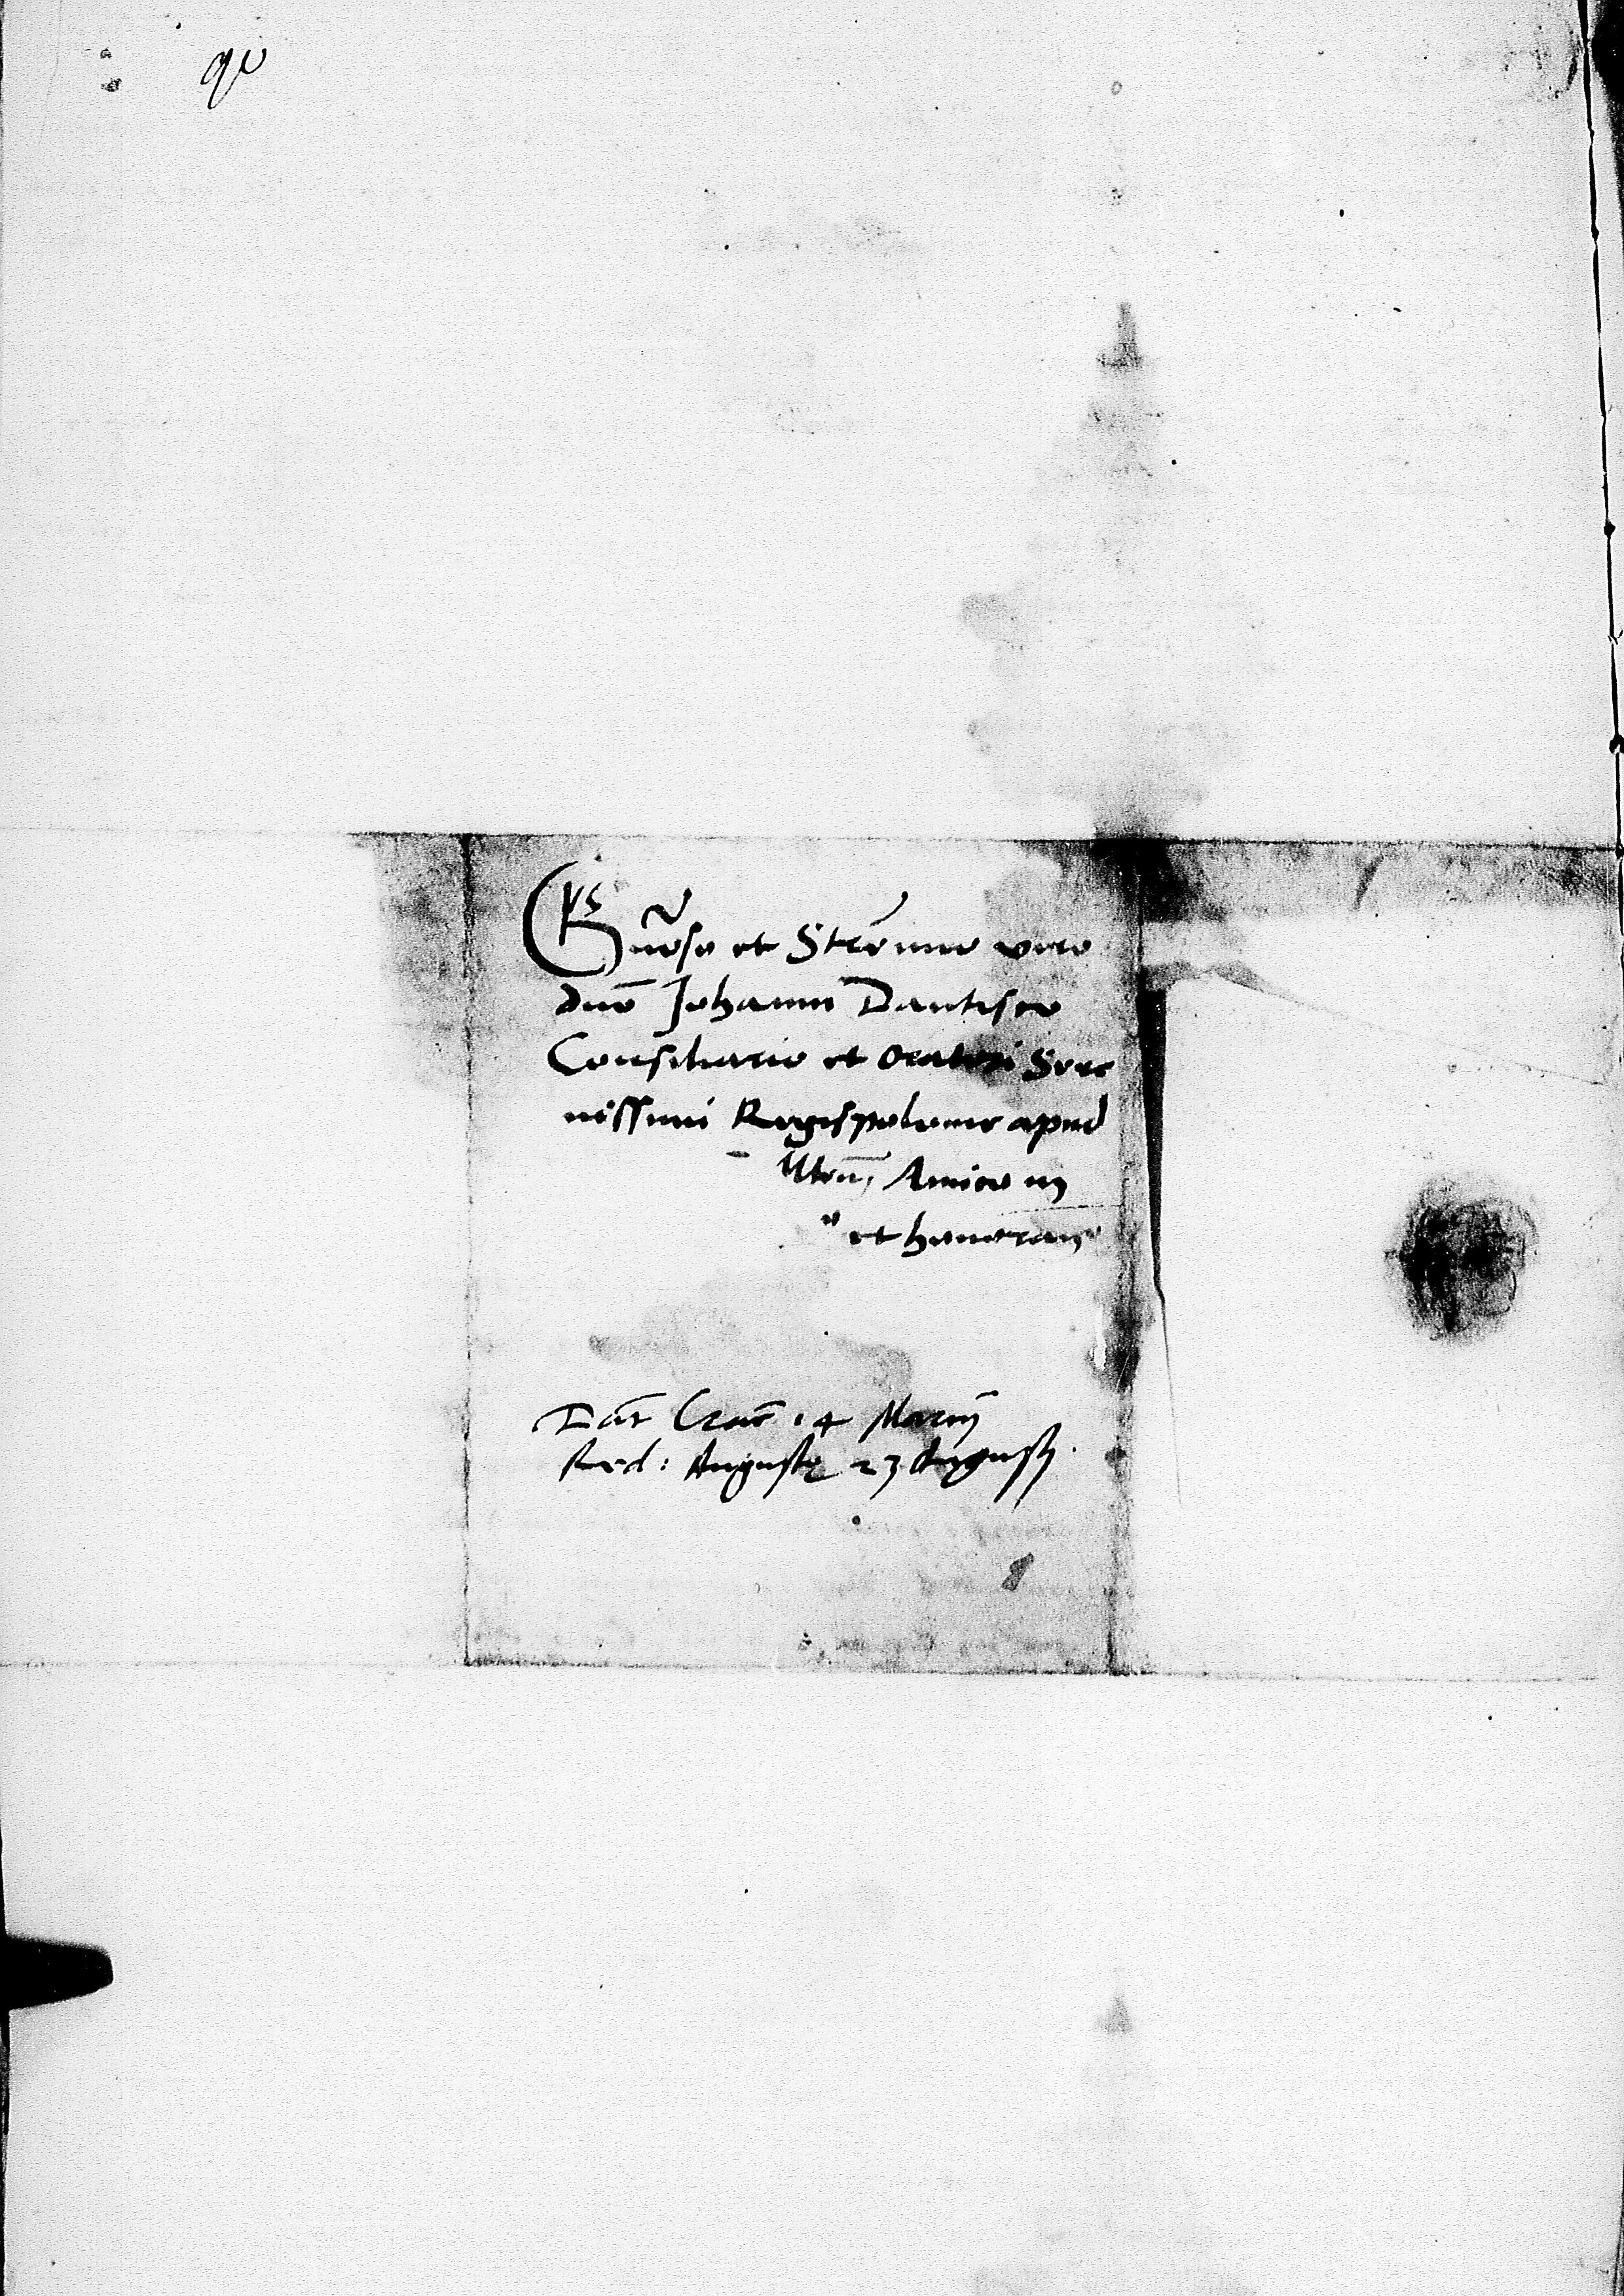 Gn̄oso et Stre͞nuo viro
dn̄o Johanni Dantisco
Consiliario et oratori Sere
nissimi Regis polonie apud
Amico
et honoran
Dat Crac 14 Marcij
Red: Augustę 23 Augustj